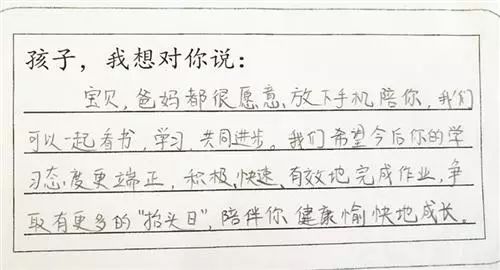 孩子，我想对你说：
宝贝，爸妈都很愿意放下手机陪你，我们
可以一起看书，学习，共同进步。我们希望今后你的学
习态度更端正，积极、快速、有效地完成作业，争
取有更多的“抬头日”，陪伴你健康愉快地成长。